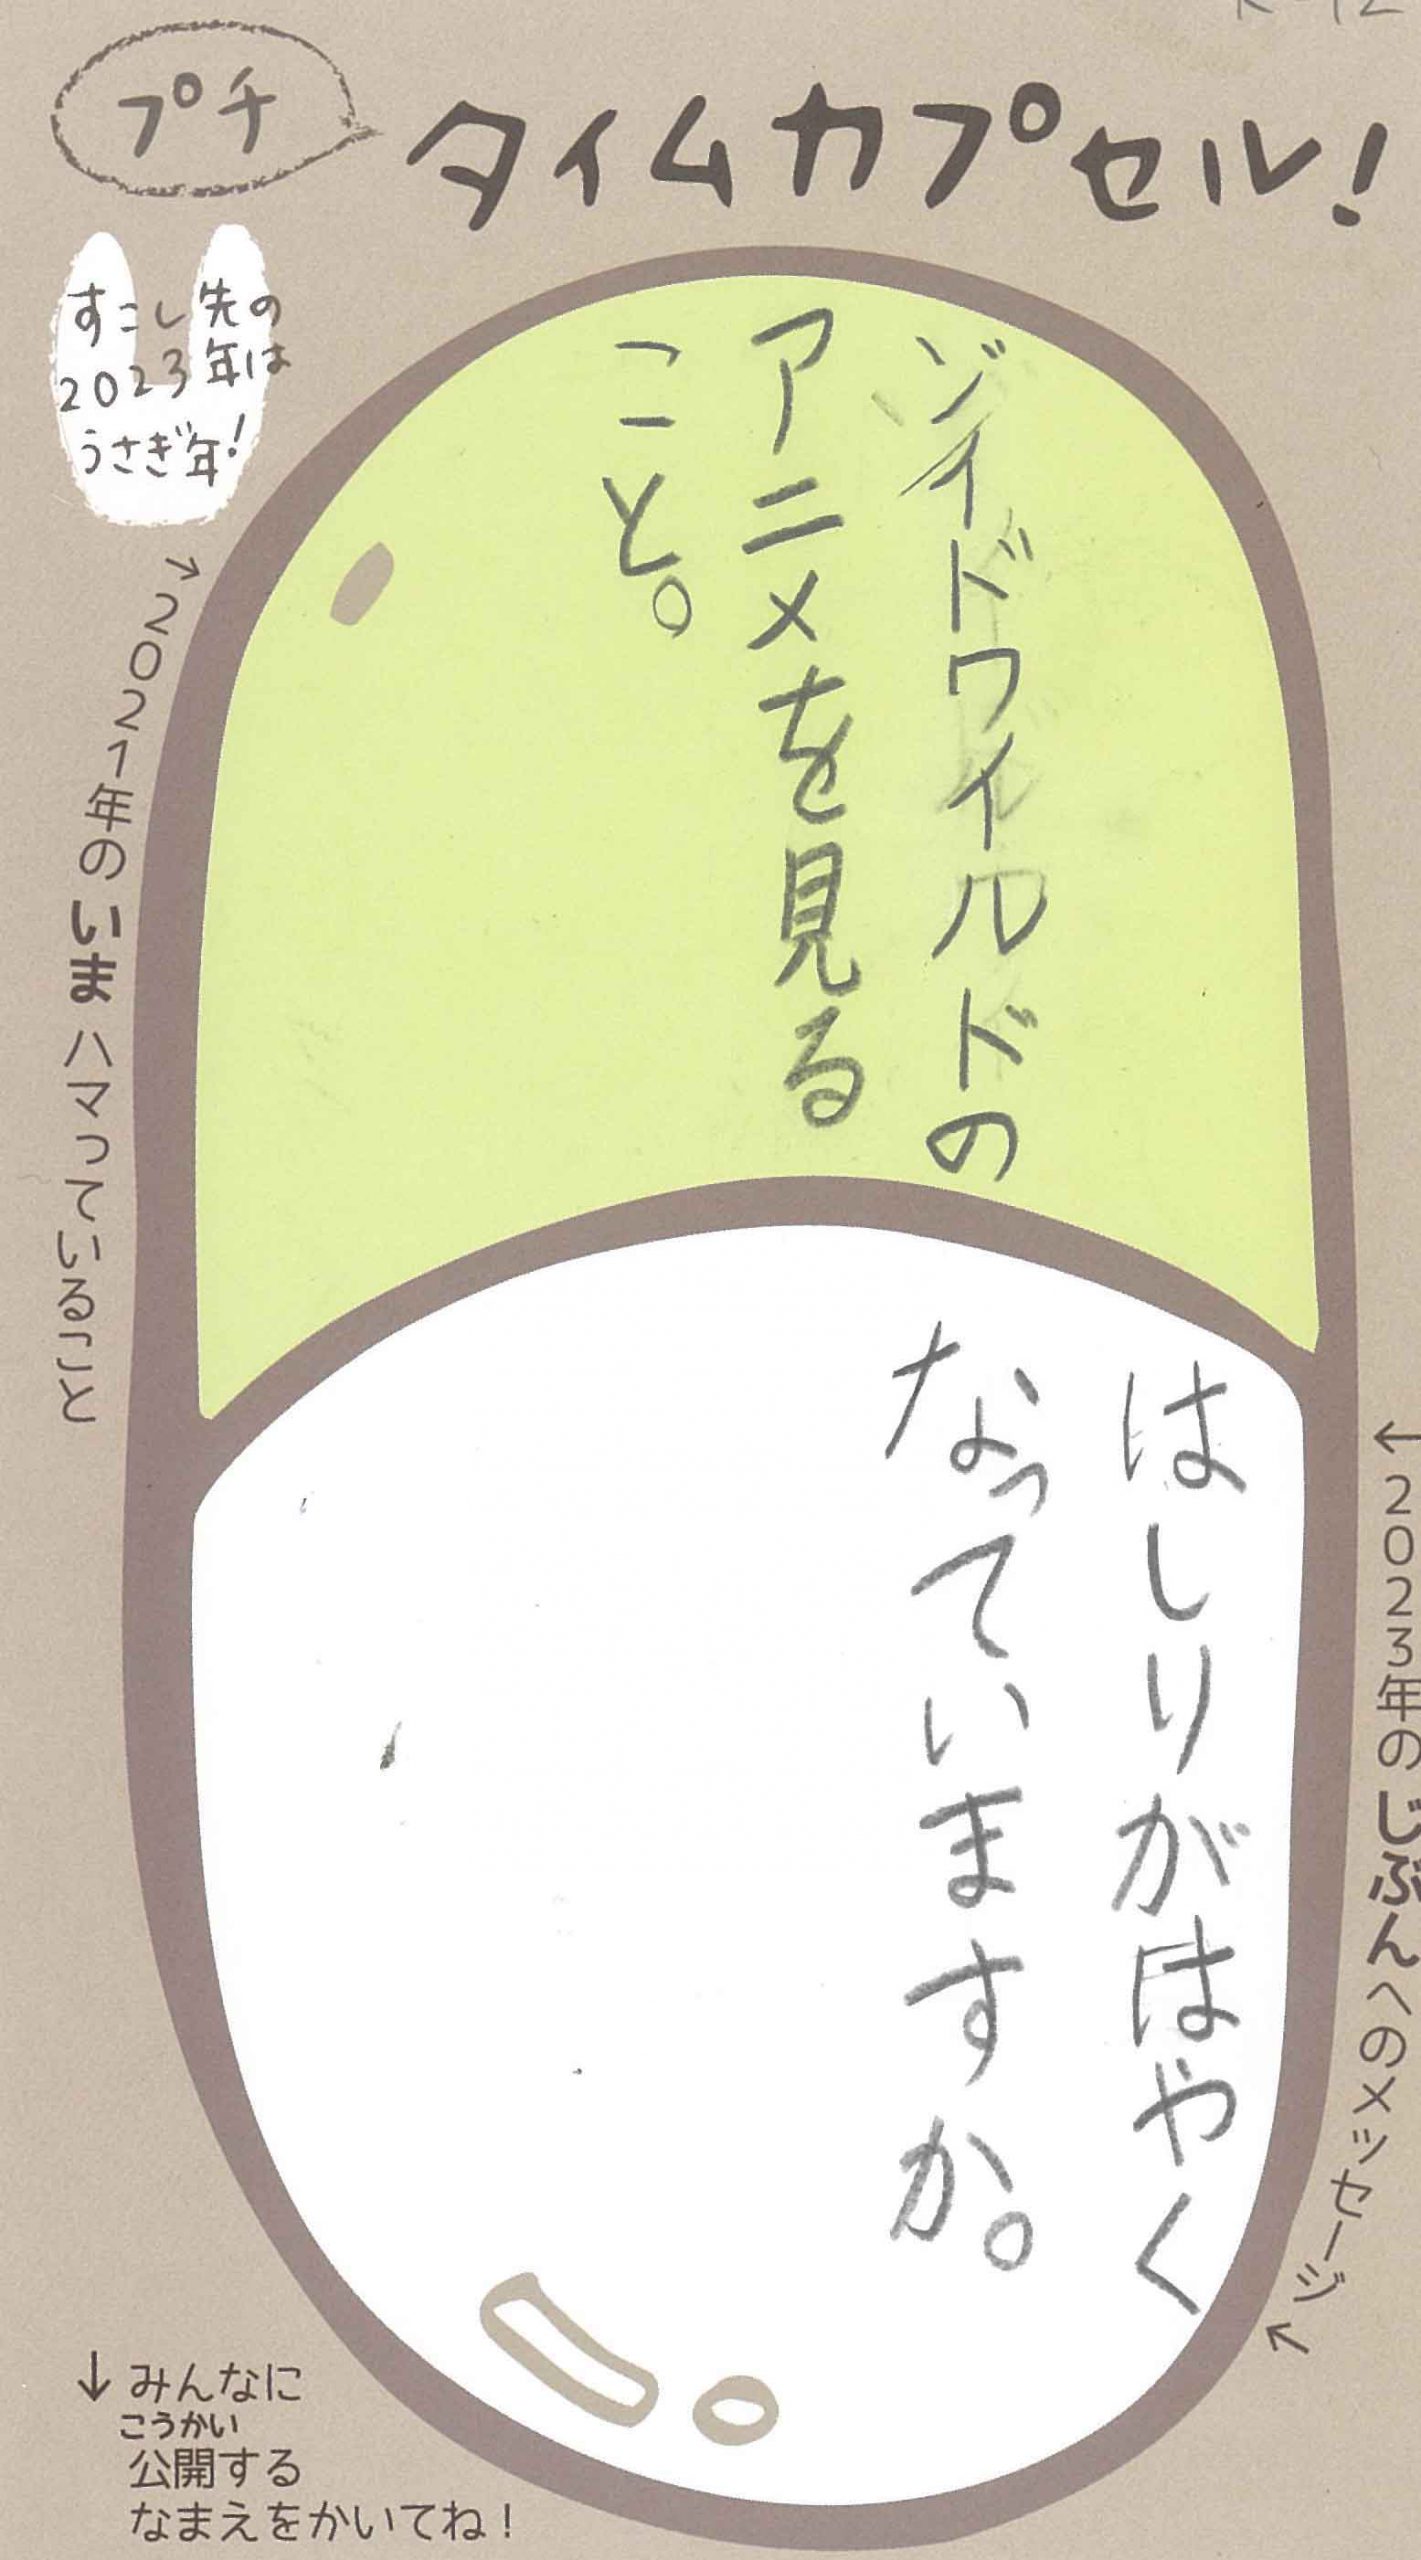 プチ
タイムカプセル!
すこし先の
2023年は
うさぎ年!
→2021年のいまハマっていること
ゾイドワイルドの
アニメを見る
こと。
←2023年のじぶんへのメッセージ↖
はしりがはやく
なっていますか。
↓みんなに
こうかい
公開する
なまえをかいてね!